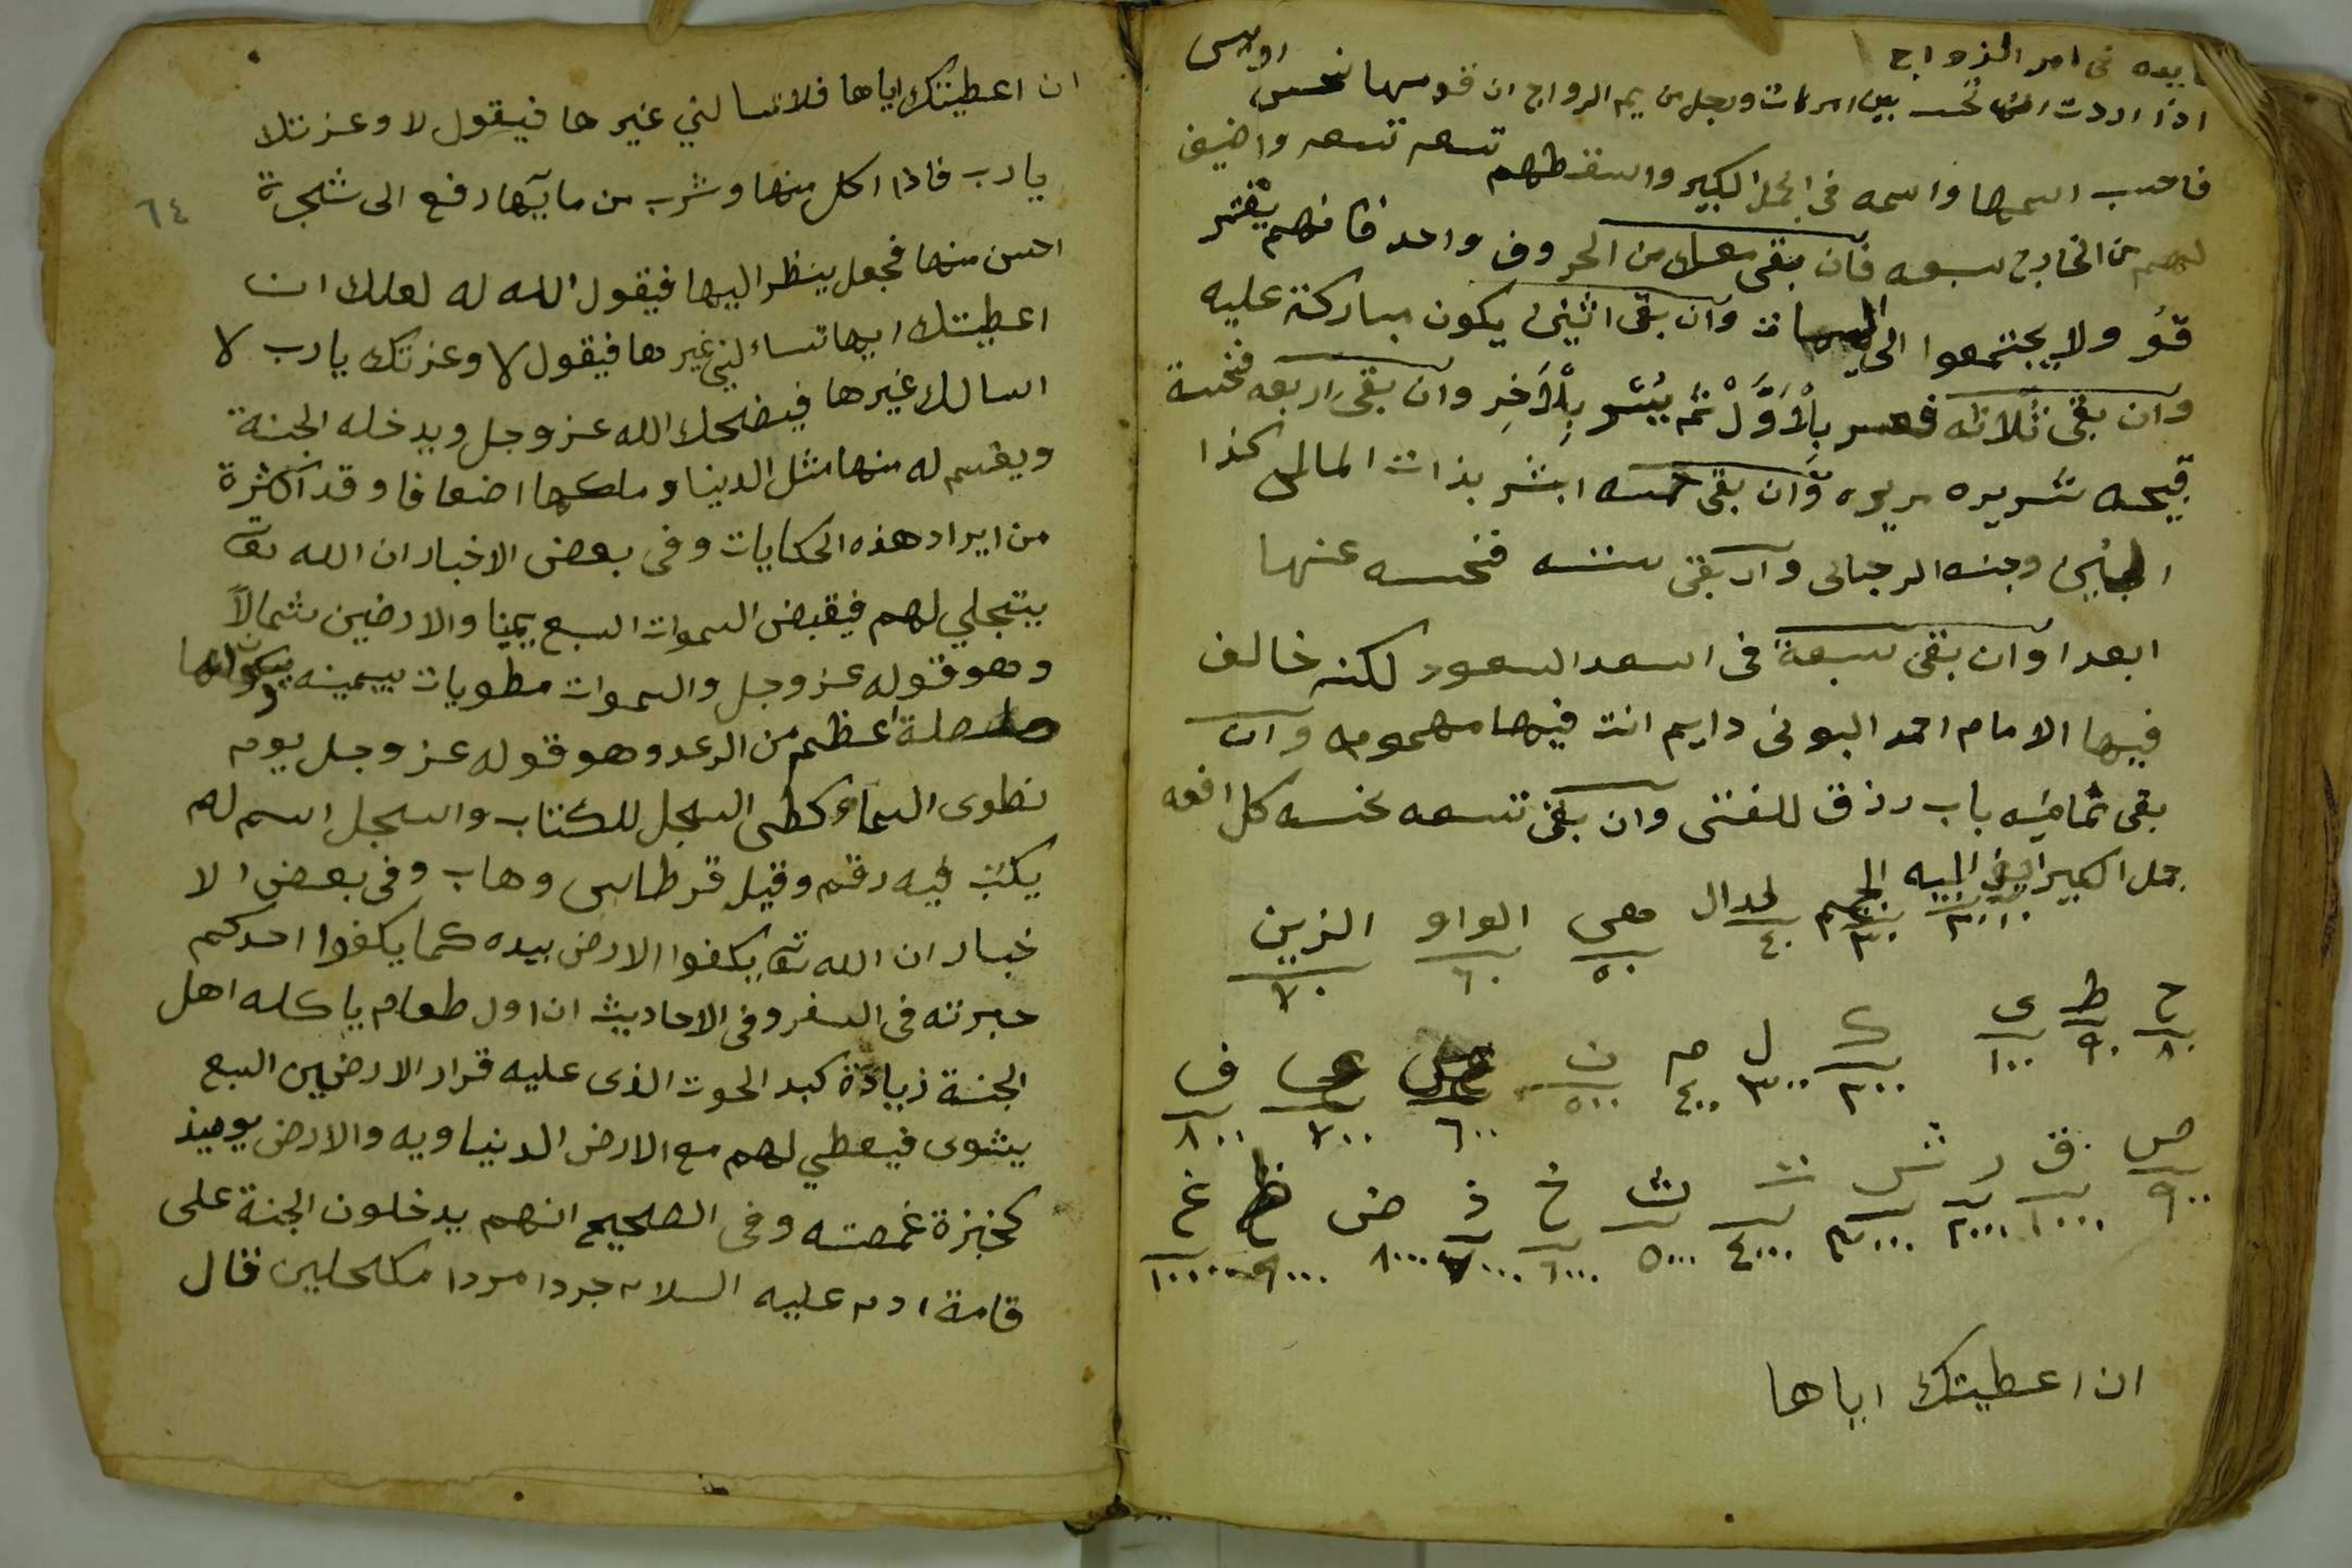 فى امر الزواج
اذا اردت ان تحسب بين امرات ورجل من يم الزواج ان قومها نحس
فاحسب اسمها واسمه فى الجمل الكبير واسقطهم تسعه تسعه واضيف
لهم من الخارج سبعه فان بقى معك من الحروف واحد فانهم يفتر
قو ولا يجتمعوا الى وان بقى اثنى يكون مباركة عليه
وان بقى ثلاثه بِلْاَوَّلْ ثم يُسْر بِلْاَخِر وان بقى اربعه فنحسة
قبيحه شريره وان بقى خمسه ابشر بذات المالى كذا
وجنه الرجالى وان بقى سته فنحسه عنها
ابعد اوان بقى سبعة فى اسعد السعود لكنه خالف
فيها الامام احمد البونى دايم انت فيها مهمومه وان
بقى ثمانيه باب رزق للفتى وان بقى تسعه نحسه كل افعه
جمل الكبير الجيم لدال هى الواو الزين
١٠ ٢٠ ٣٠ ٤٠ ٥٠ ٦٠ ٧٠
ح ط ى ك ل م ن ع ف
٨٠ ٩٠ ١٠٠ ٢٠٠ ٣٠٠ ٤٠٠ ٥٠٠ ٦٠٠ ٧٠٠ ٨٠٠
ص ق ر ش ت ث خ ذ ض ظ غ
٩٠٠ ١٠٠٠ ٢٠٠٠ ٣٠٠٠ ٤٠٠٠ ٥٠٠٠ ٦٠٠٠ ٧٠٠٠ ٨٠٠٠ ٩٠٠٠ ١٠٠٠٠
ان اعطيتك اياها
ان اعطيتك اياها فلا تسالني غيرها فيقول لا وعزتك
يارب فاذا اكل منها وشرب من مايها رفع الى شجرة
٦٤
احسن منها فجعل ينظر اليها فيقول الله له لعلك ان
اعطيتك ايها تساءلني غيرها فيقول لا وعزتك يارب لا
اسالك غيرها فيضحك الله عز وجل ويدخله الجنة
ويقسم له منها مثل الدنيا وملكها اضعافا وقد اكثرة
من ايراد هذه الحكايات وفى بعض الاخبار ان الله تعا
يتجلي لهم فيقبض السموات السبع يمينا والارضين شمالاً
وهو قوله عز وجل والسموات مطويات بيمينه
صلصلة اعظم من الرعد وهو قوله عز وجل يوم
نطوى السماء كطى السجل للكتاب والسجل اسم له
يكتب فيه رقم وقيل قرطاس وهاب وفى بعض الا
خبار ان الله تعا يكفوا الارض بيده كما يكفوا احدكم
خبزته فى السفر وفى الاحاديث ان اول طعام ياكله اهل
الجنة زيادة كبد الحوت الذى عليه قرار الارضين السبع
يشوى فيعطي لهم مع الارض الدنياويه والارض يوميذ
كخبزة غمصته وفى الصحيح انهم يدخلون الجنة على
قامة ادم عليه السلام جردا مردا مكحلين قال